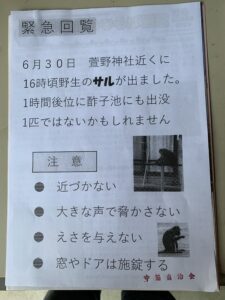 緊急回覧
6月30日　萱野神社近くに
16時頃野生のサルが出ました。
1時間後位に酢子池にも出没
1匹ではないかもしれません
注　意
近づかない
大きな声で脅かさない
えさを与えない
窓やドアは施錠する
自治会